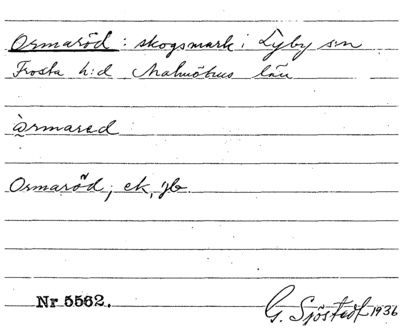 Ormaröd : skogsmark i Lyby sn
Frosta h:d Malmöhus län
òrmared
Ormaröd, ek, jb.
Nr 5562.
G. Sjöstedt 1936